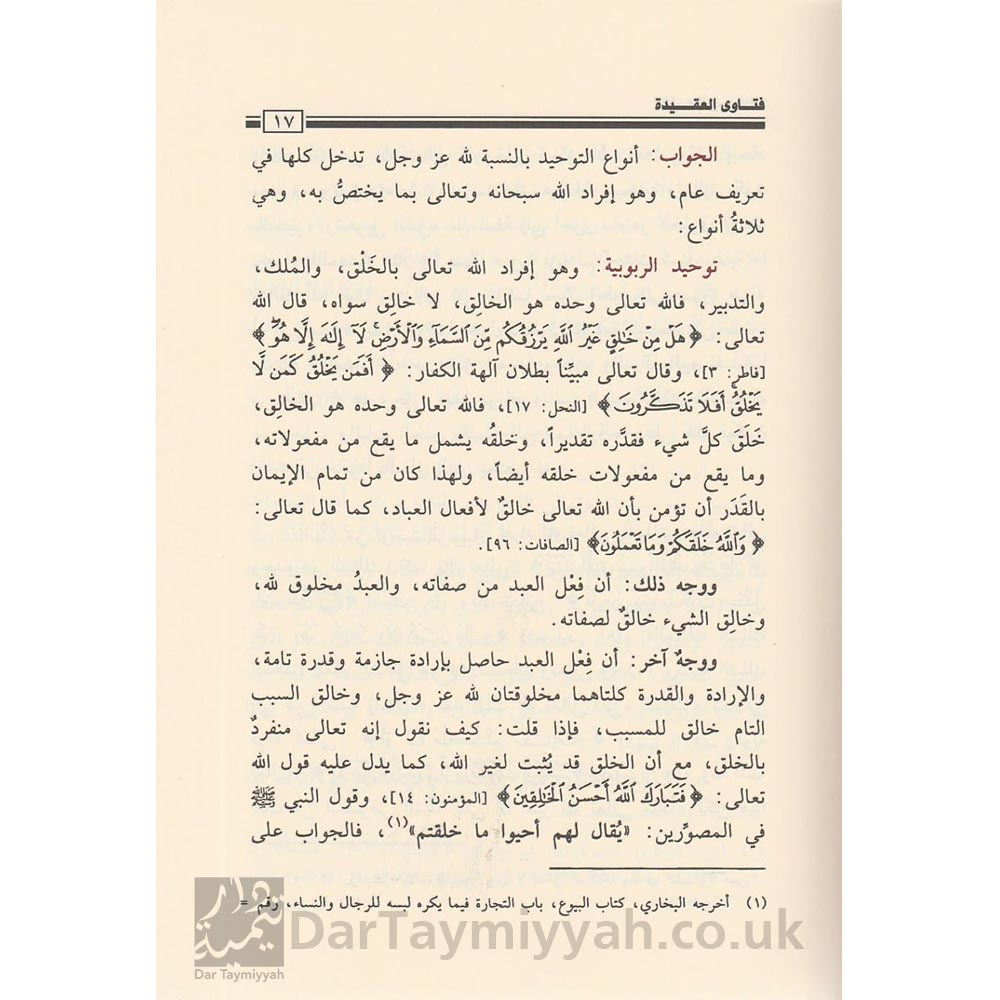 فتاوى العقيدة
١٧
الجواب: أنواع التوحيد بالنسبة لله عز وجل، تدخل كلها في
تعريف عام، وهو إفراد الله سبحانه وتعالى بما يختصُّ به، وهي
ثلاثةُ أنواع:
توحيد الربوبية: وهو إفراد الله تعالى بالخَلْق، والمُلك،
والتدبير، فالله تعالى وحده هو الخالِق، لا خالِق سواه، قال الله
تعالى: ﴿هَلْ مِنْ خَٰلِقٍ غَيْرُ ٱللَّهِ يَرْزُقُكُم مِّنَ ٱلسَّمَآءِ وَٱلْأَرْضِۚ لَآ إِلَٰهَ إِلَّا هُوَۖ﴾
[فاطر: ٣]، وقال تعالى مبيِّناً بطلان آلهة الكفار: ﴿أَفَمَن يَخْلُقُ كَمَن لَّا
يَخْلُقُۗ أَفَلَا تَذَكَّرُونَ﴾ [النحل: ١٧]، فالله تعالى وحده هو الخالِق،
خَلَقَ كلَّ شيء فقدَّره تقديراً، وخلقُه يشمل ما يقع من مفعولاته،
وما يقع من مفعولات خلقه أيضاً، ولهذا كان من تمام الإيمان
بالقَدَر أن تؤمن بأن الله تعالى خالقٌ لأفعال العباد، كما قال تعالى:
﴿وَٱللَّهُ خَلَقَكُمْ وَمَا تَعْمَلُونَ﴾ [الصافات: ٩٦].
ووجه ذلك: أن فِعْل العبد من صفاته، والعبدُ مخلوق لله،
وخالِق الشيء خالقٌ لصفاته.
ووجهٌ آخر: أن فِعْل العبد حاصل بإرادة جازمة وقدرة تامة،
والإرادة والقدرة كلتاهما مخلوقتان لله عز وجل، وخالق السبب
التام خالق للمسبب، فإذا قلت: كيف نقول إنه تعالى منفردٌ
بالخلق، مع أن الخلق قد يُثبت لغير الله، كما يدل عليه قول الله
تعالى: ﴿فَتَبَارَكَ ٱللَّهُ أَحْسَنُ ٱلْخَٰلِقِينَ﴾ [المؤمنون: ١٤]، وقول النبي ﷺ
في المصوِّرين: «يُقال لهم أحيوا ما خلقتم»(١)، فالجواب على
(١) أخرجه البخاري، كتاب البيوع، باب التجارة فيما يكره لبسه للرجال والنساء، رقم =
دار تيمية
Dar Taymiyyah
DarTaymiyyah.co.uk